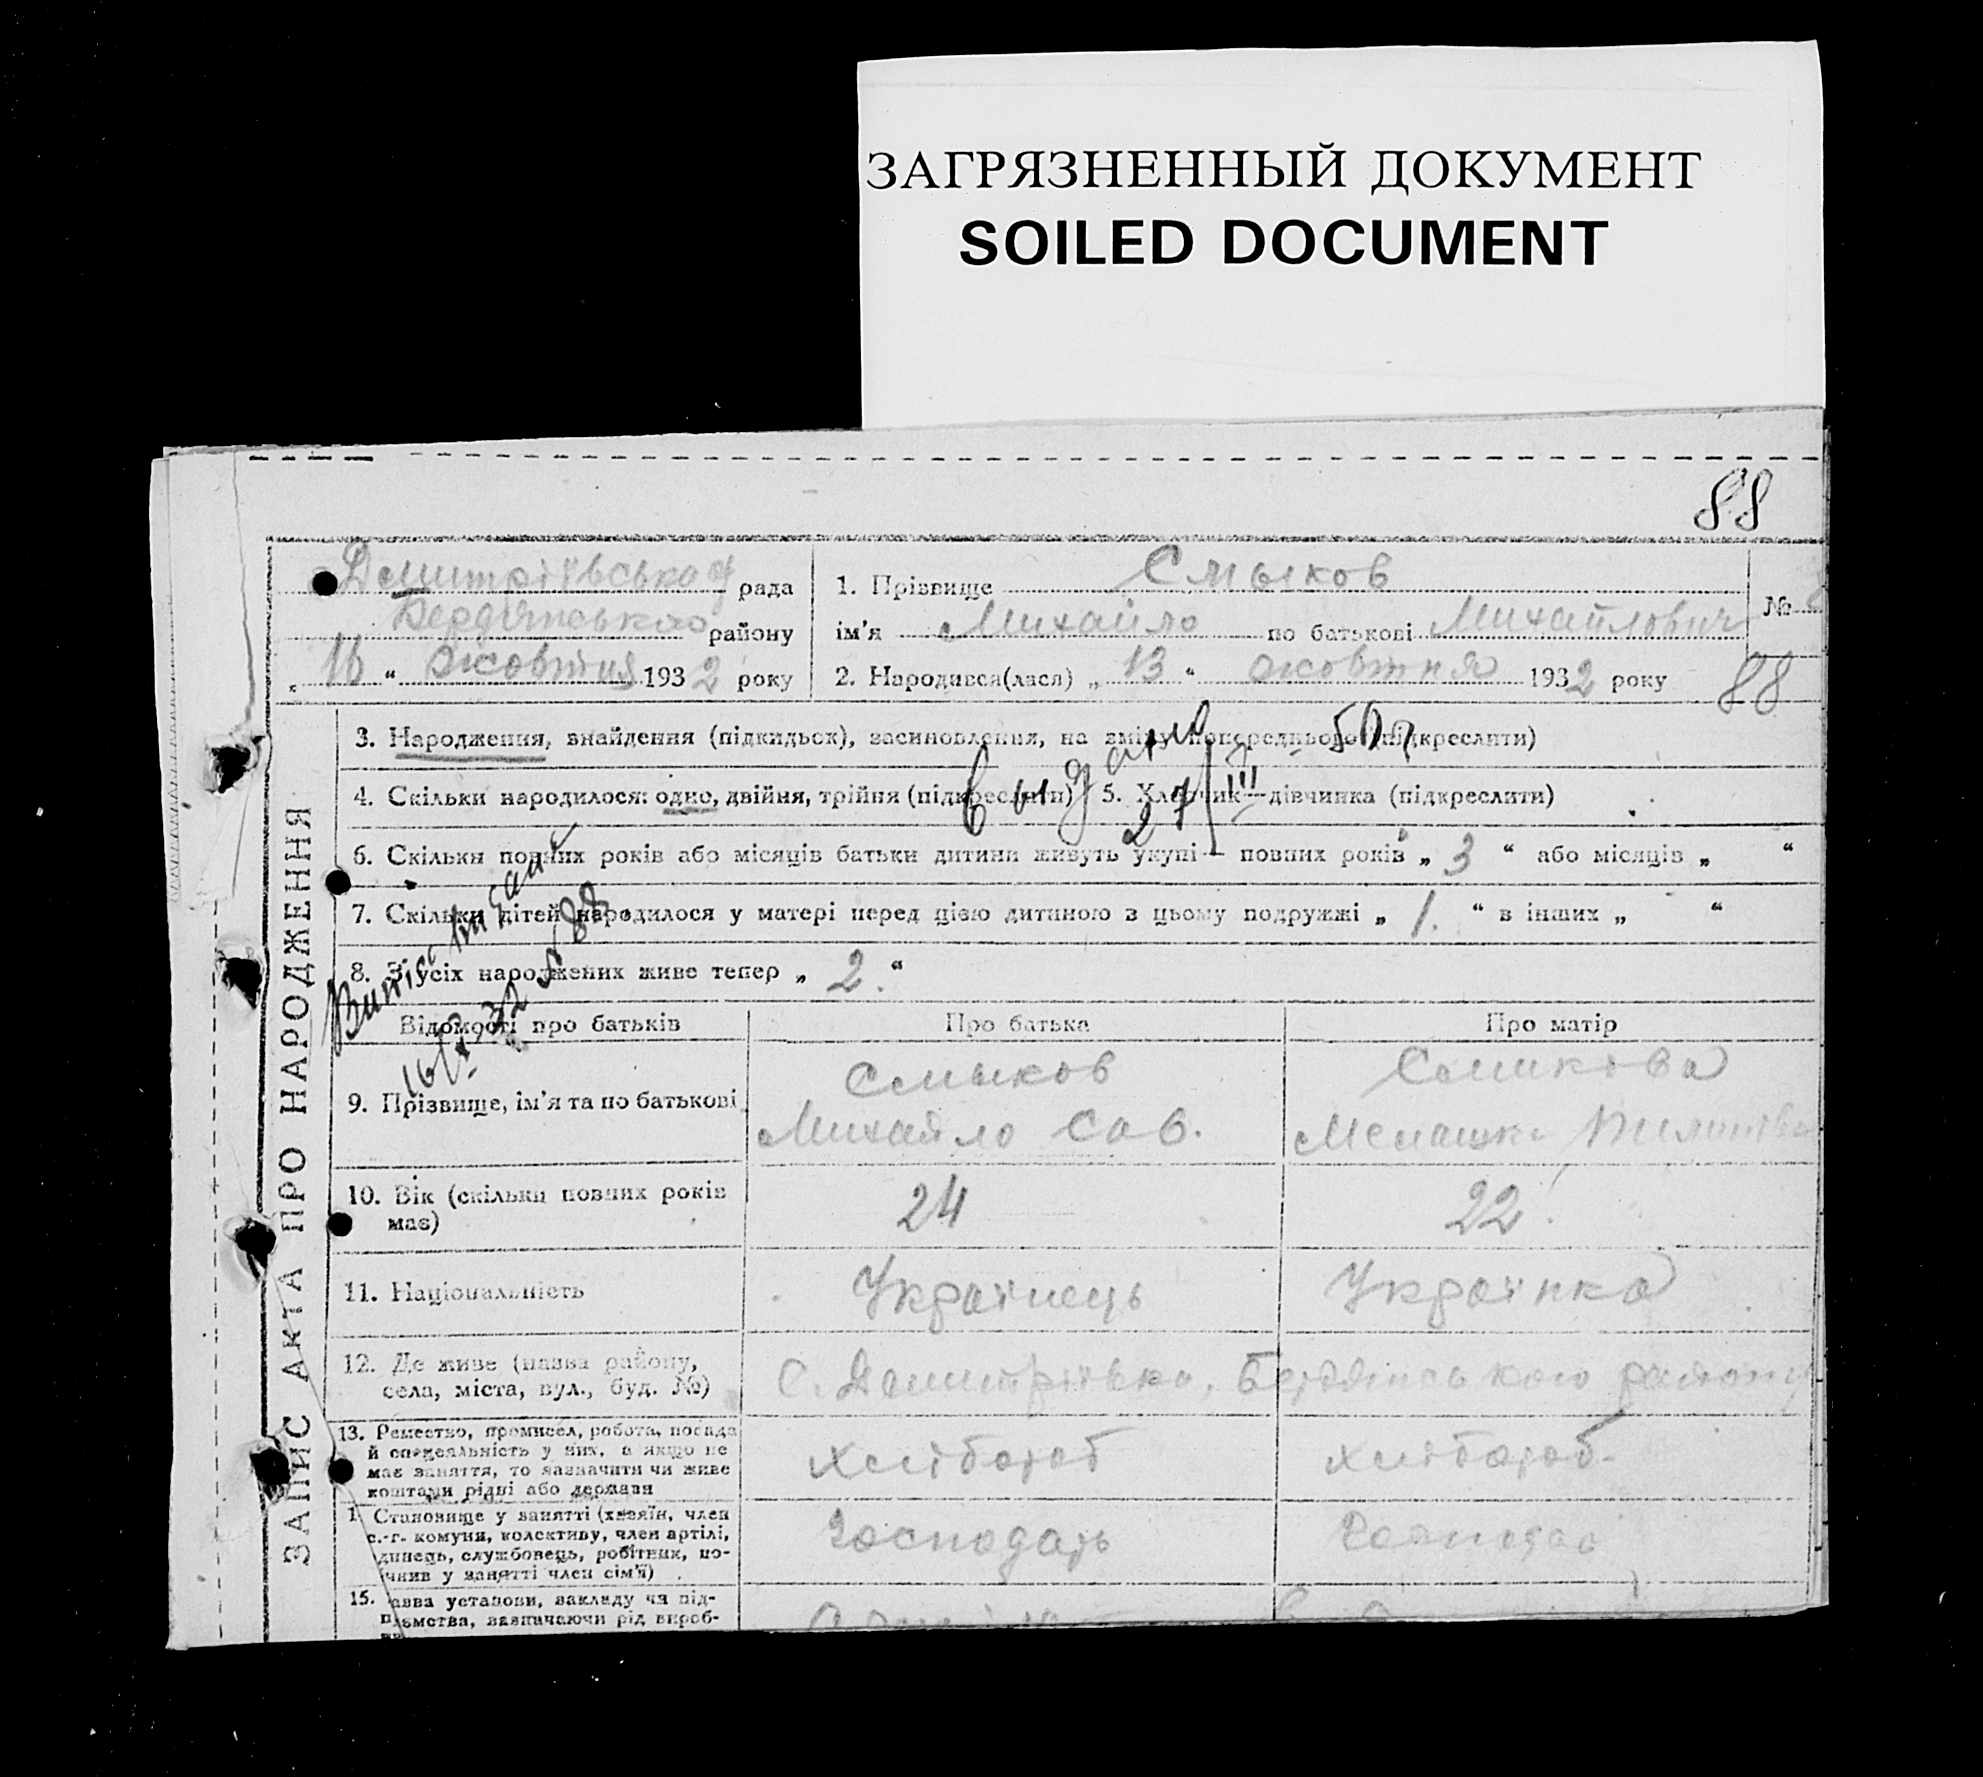 ЗАГРЯЗНЕННЫЙ ДОКУМЕНТ
SOILED DOCUMENT
88
ЗАПИС АКТА ПРО НАРОДЖЕННЯ
Демитріївської рада
Бердянського району
„ 16 “ жовтня 1932 року
1. Прізвище Смыков
ім’я Михайло по батькові Михайлович
2. Народився(лася) „ 13 “ жовтня 1932 року
№ 88
3. Народження, знайдення (підкидьок), засиновлення, на зміну попереднього (підкреслити)
4. Скільки народилося: одно, двійня, трійня (підкреслити) 5. Хлопчик—дівчинка (підкреслити)
Выдано
27/III–50 г
6. Скільки повних років або місяців батьки дитини живуть укупі — повних років „ 3 “ або місяців „ “
7. Скільки дітей народилося у матері перед цією дитиною в цьому подружжі „ 1. “ в інших „ “
8. З усіх народжених живе тепер „ 2. “
32 № 88
Відомості про батьків
Про батька
Про матір
9. Прізвище, ім’я та по батькові
Смыков
Михайло Сав.
Смикова
Мелашка
10. Вік (скільки повних років має)
24
22.
11. Національність
Українець
Українка
12. Де живе (назва району, села, міста, вул., буд. №)
С. Демитріївка, Бердянського району
13. Ремество, промисел, робота, посада
й спеціяльність у них, а якщо не
має заняття, то зазначити чи живе
коштами рідні або держави
хлібороб
хлібороб.
1 Становище у занятті (хазяїн, член
с.-г. комуни, колективу, член артілі,
динець, службовець, робітник, по-
чнив у занятті член сім’ї)
господарь
15. азва установи, закладу чи під-
ємства, зазначаючи рід вироб-